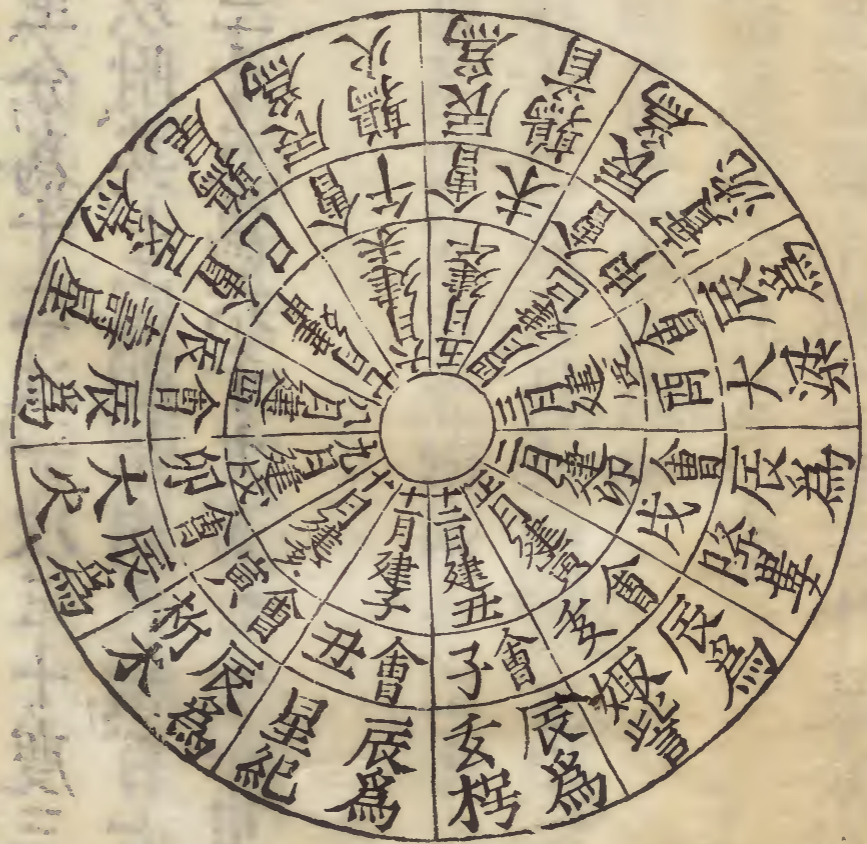 正月建寅
會亥
辰爲
娵訾
二月建卯
會戌
辰爲
降婁
三月建辰
會酉
辰爲
大梁
四月建巳
會申
辰爲
實沈
五月建午
會未
辰爲
鶉首
六月建未
會午
辰爲
鶉火
七月建申
會巳
辰爲
鶉尾
八月建酉
會辰
辰爲
壽星
九月建戌
會卯
辰爲
大火
十月建亥
會寅
辰爲
析木
十一月建子
會丑
辰爲
星紀
十二月建丑
會子
辰爲
玄枵